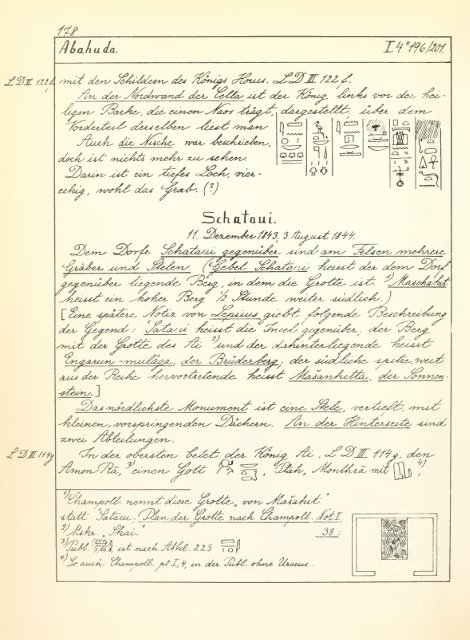 178
Abahuda. I 4° 196/201.
L D III. 122 f. mit den Schildern des Königs Horus. L D III 122 f.
An der Nordwand der Cella ist der König links vor der hei-
ligen Barke, die einen Naos trägt, dargestellt, über dem
Vorderteil derselben liest man
Auch die Nische war beschrieben,
doch ist nichts mehr zu sehen.
Darin ist ein tiefes Loch, vier-
eckig, wohl das Grab. (?)
Schataui.
11. Dezember 1843, 3. August 1844.
Dem Dorfe Schataui gegenüber sind am Felsen mehrere
Gräber und Stelen. (Gebel Schataui heisst der dem Dorf
gegenüber liegende Berg, in dem die Grotte ist. 1) Maschakit
heisst ein hoher Berg ½ Stunde weiter südlich.)
[Eine spätere Notiz von Lepsius giebt folgende Beschreibung
der Gegend: Sataui heisst die Insel gegenüber, der Berg
mit der Grotte des Ai 2) und der dahinterliegende heisst
Engarun-mulága, der Brüderberg, der südliche spitze, weit
aus der Reihe hervortretende heisst Mašankitta, der Sonnen-
stein.]
Das nördlichste Monument ist eine Stele, vertieft, mit
kleinen, vorspringenden Dächern. An der Hinterseite sind
zwei Abteilungen.
L D III. 114 g. In der obersten betet der König Ai, L. D III. 114 g, den
Amon-Rā, 3) einen Gott Ptah, Monthrā mit 4)
1) Champoll. nennt diese Grotte "von Mašakit"
statt Sataui. Plan der Grotte nach Champoll. Not I,
2) Mskr. "Skai". 38:
3) Publ. ist nach Abkl. 223
4) So auch Champoll. pl I, 4, in der Publ. ohne Uraeus.